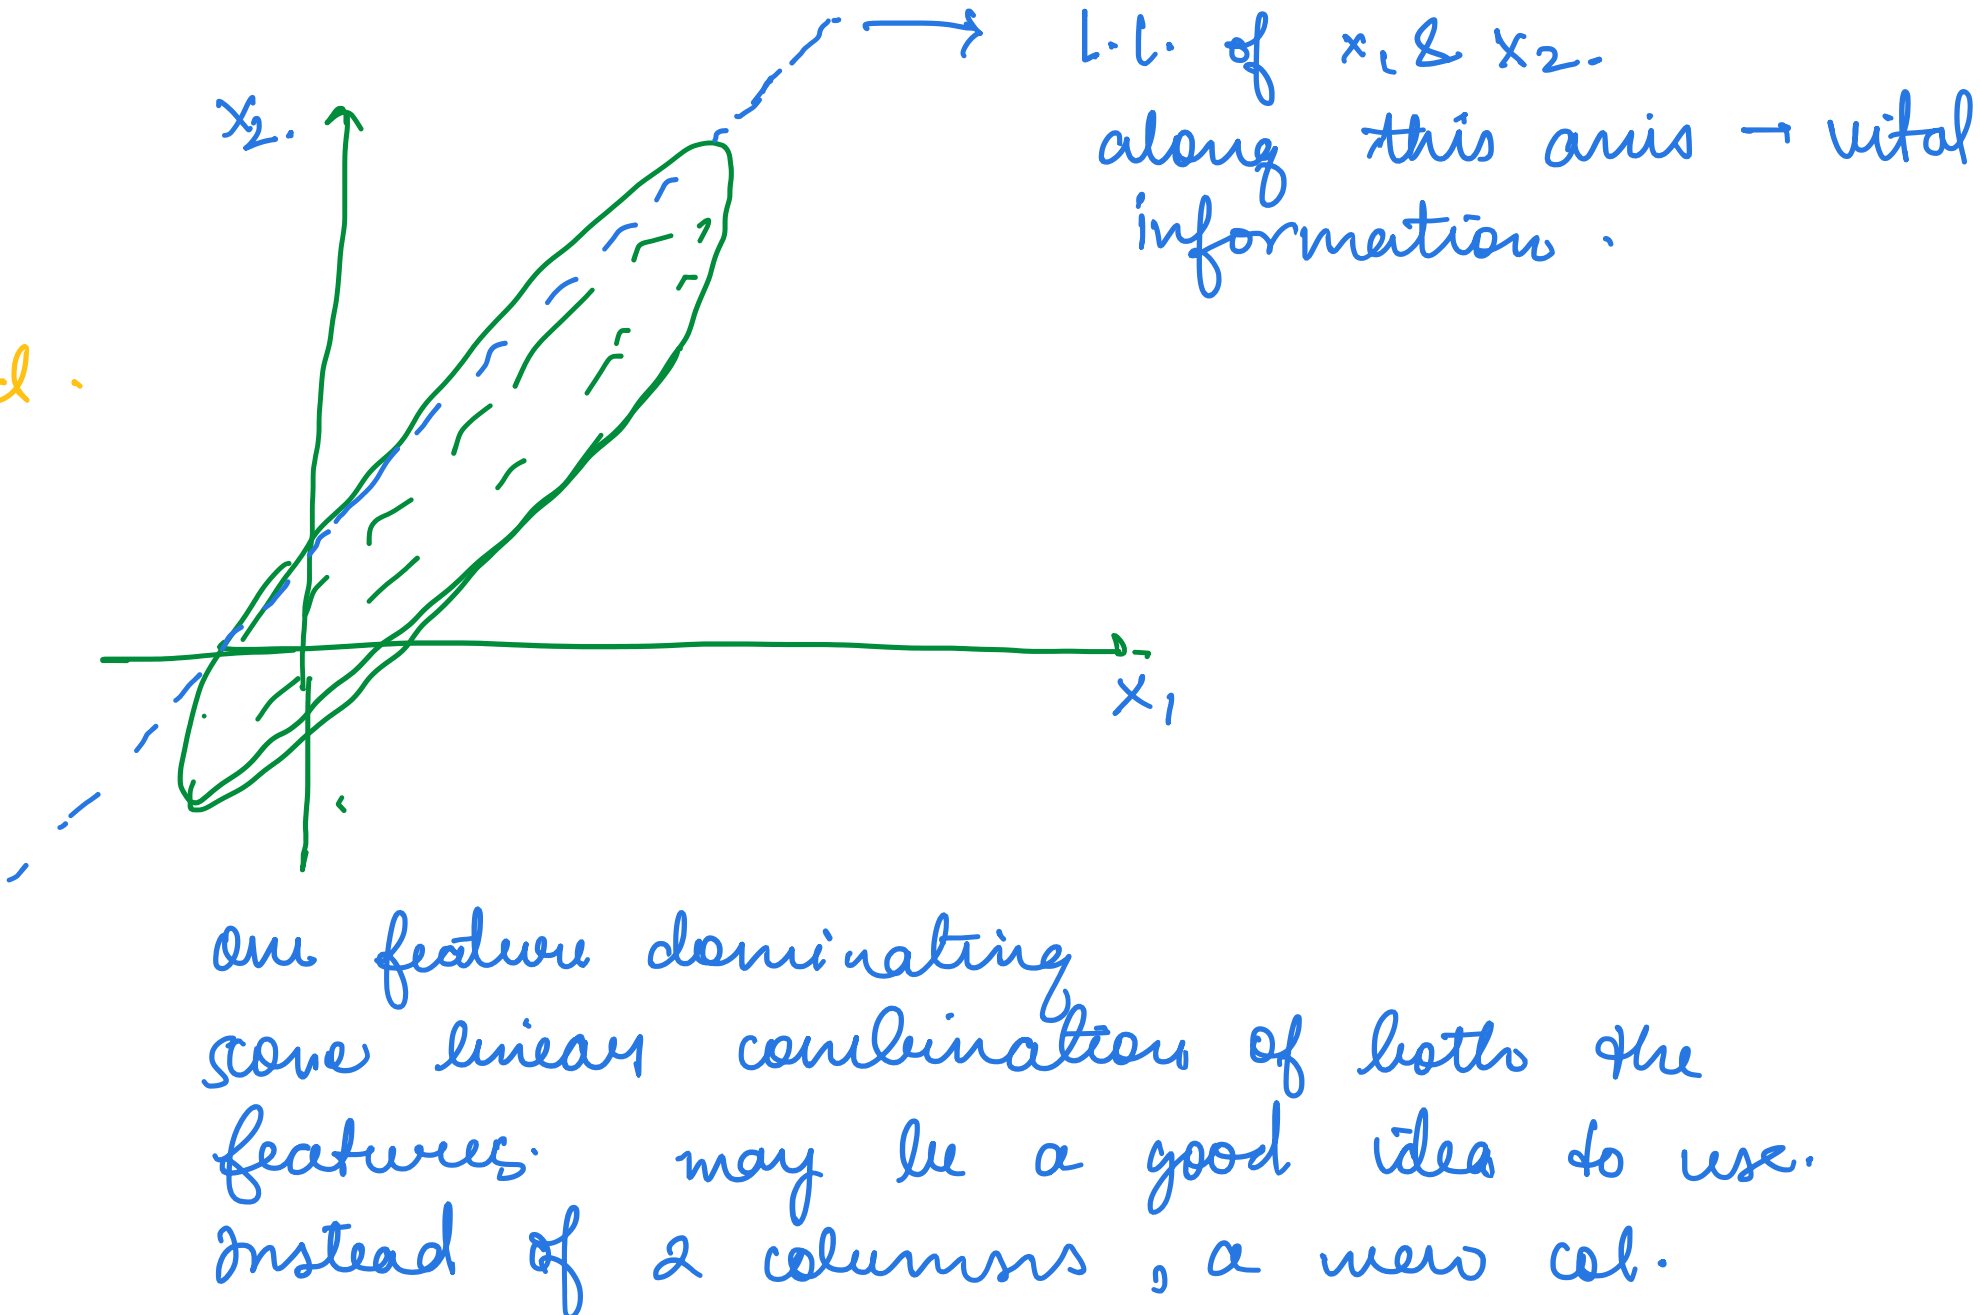 x2.
L.C. of x1 & x2.
along this axis → vital
information.
x1
one feature dominating
some linear combination of both the
features. may be a good idea to use.
Instead of 2 columns, a new col.